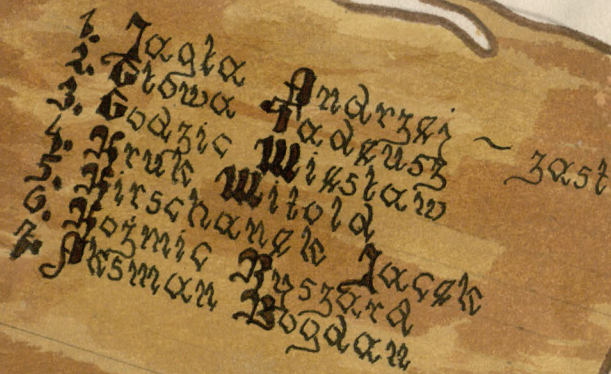 1. Jagła Andrzej ~ zast
2. Głowa Tadeusz
3. Godzic Wiesław
4. Kruk Witold
5. Kirschanek Jacek
6. Koźmic Ryszard
7. Aksman Bogdan